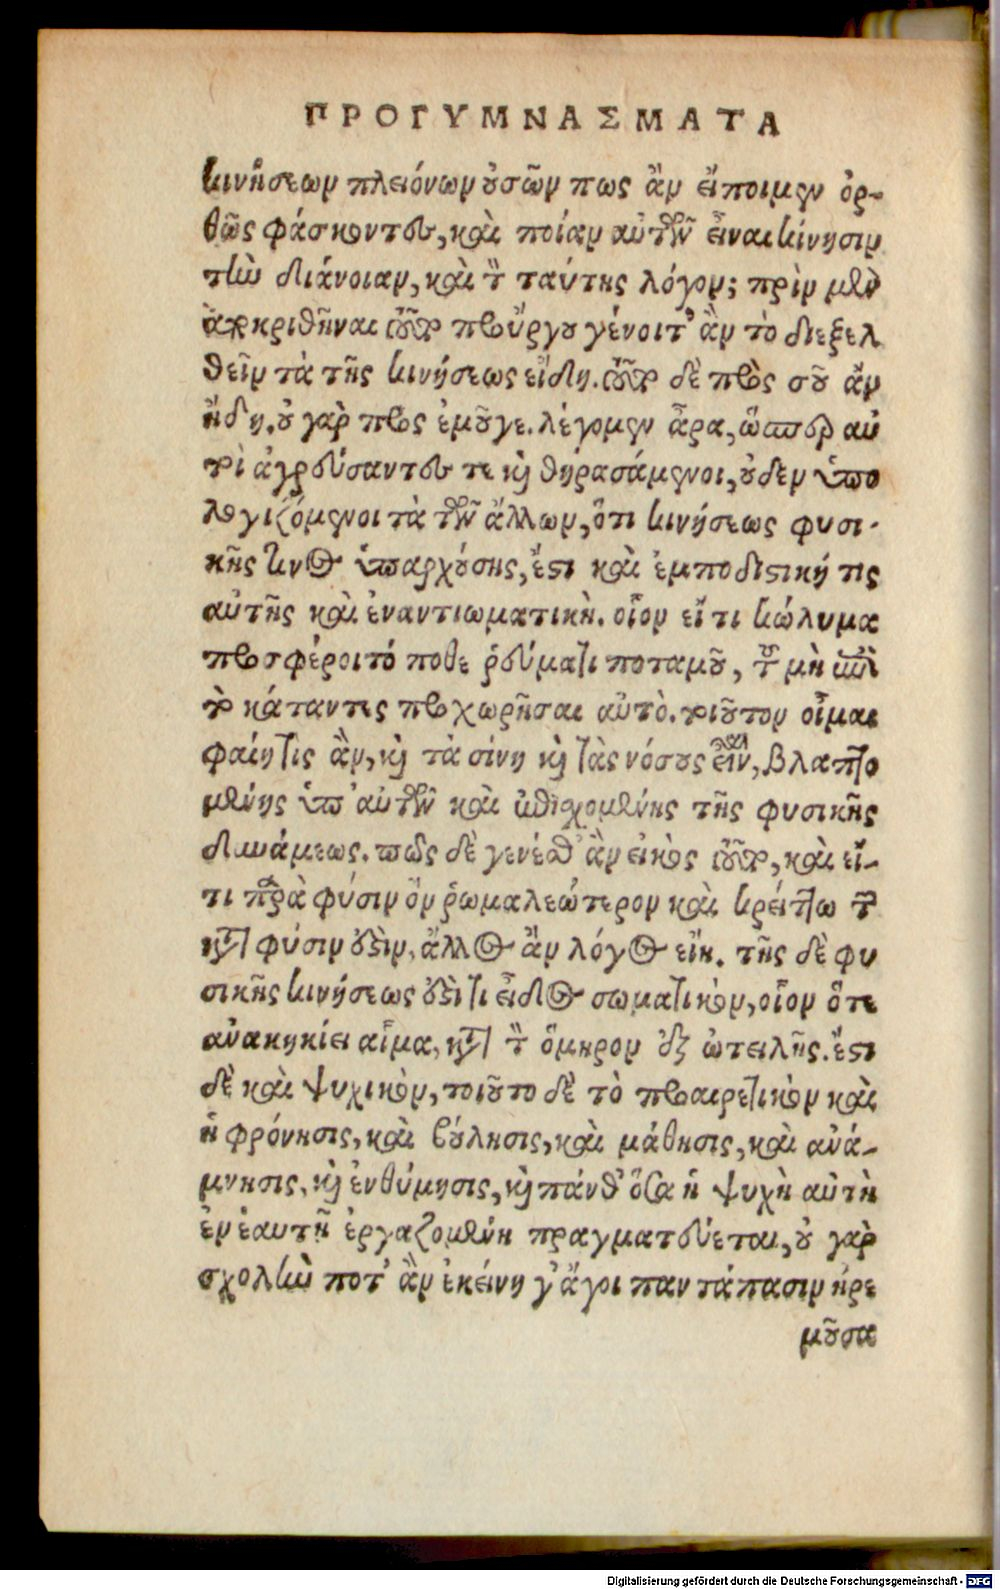 ΠΡΟΓΥΜΝΑΣΜΑΤΑ
κινήσεων πλειόνων οὐσῶν πως ἂν εἴποιμεν ὀρ-
θῶς φάσκοντες, καὶ ποίαν αὐτῶν εἶναι κίνησιν
τὴν διάνοιαν, καὶ τὸν ταύτης λόγον; πρὶν μὲν
διακριθῆναι τοῦτο προὔργου γένοιτ' ἂν τὸ διεξελ
θεῖν τὰ τῆς κινήσεως εἴδη. τοῦτο δὲ πρὸς σοῦ ἂν
ἤδη. οὐ γὰρ πρὸς ἐμοῦγε. λέγομεν ἆρα, ὥσπερ αὐ
τοὶ ἀγρεύσαντες τε καὶ θηρασάμενοι, οὐδὲν ὑπο
λογιζόμενοι τὰ τῶν ἄλλων, ὅτι κινήσεως φυσι-
κῆς τινος ὑπαρχούσης, ἔστι καὶ ἐμποδιστική τις
αὐτῆς καὶ ἐναντιωματικὴ. οἷον εἴ τι κώλυμα
προσφέροιτό ποθε ῥεύματι ποταμοῦ, τοῦ μὴ ἐπὶ
τὸ κάταντες προχωρῆσαι αὐτὸ. τοιοῦτον οἶμαι
φαίη τις ἂν, καὶ τὰ σίνη καὶ τὰς νόσους εἶναι, βλαπτο
μένης ὑπ' αὐτῶν καὶ ἐπεχομένης τῆς φυσικῆς
δυνάμεως. πῶς δὲ γενέσθ' ἂν εἰκὸς τοῦτο, καὶ εἴ-
τι παρὰ φύσιν ὂν ῥωμαλεώτερον καὶ κρείττω τοῦ
κατὰ φύσιν ἐστὶν, ἄλλος ἂν λόγος εἴη. τῆς δὲ φυ
σικῆς κινήσεως ἐστί τι εἶδος σωματικὸν, οἷον ὅτε
ἀνακηκίει αἷμα, κατὰ τὸν ὅμηρον ἐξ ὠτειλῆς. ἔστι
δὲ καὶ ψυχικὸν, τοιοῦτο δὲ τὸ προαιρετικὸν καὶ
ἡ φρόνησις, καὶ βούλησις, καὶ μάθησις, καὶ ἀνά-
μνησις, καὶ ἐνθύμησις, καὶ πάνθ' ὅσα ἡ ψυχὴ αὐτὴ
ἐν ἑαυτῇ ἐργαζομένη πραγματεύεται, οὐ γὰρ
σχολὴν ποτ' ἂν ἐκείνη γ' ἄγοι παντάπασιν ἠρε
μοῦσα
Digitalisierung gefördert durch die Deutsche Forschungsgemeinschaft - DFG